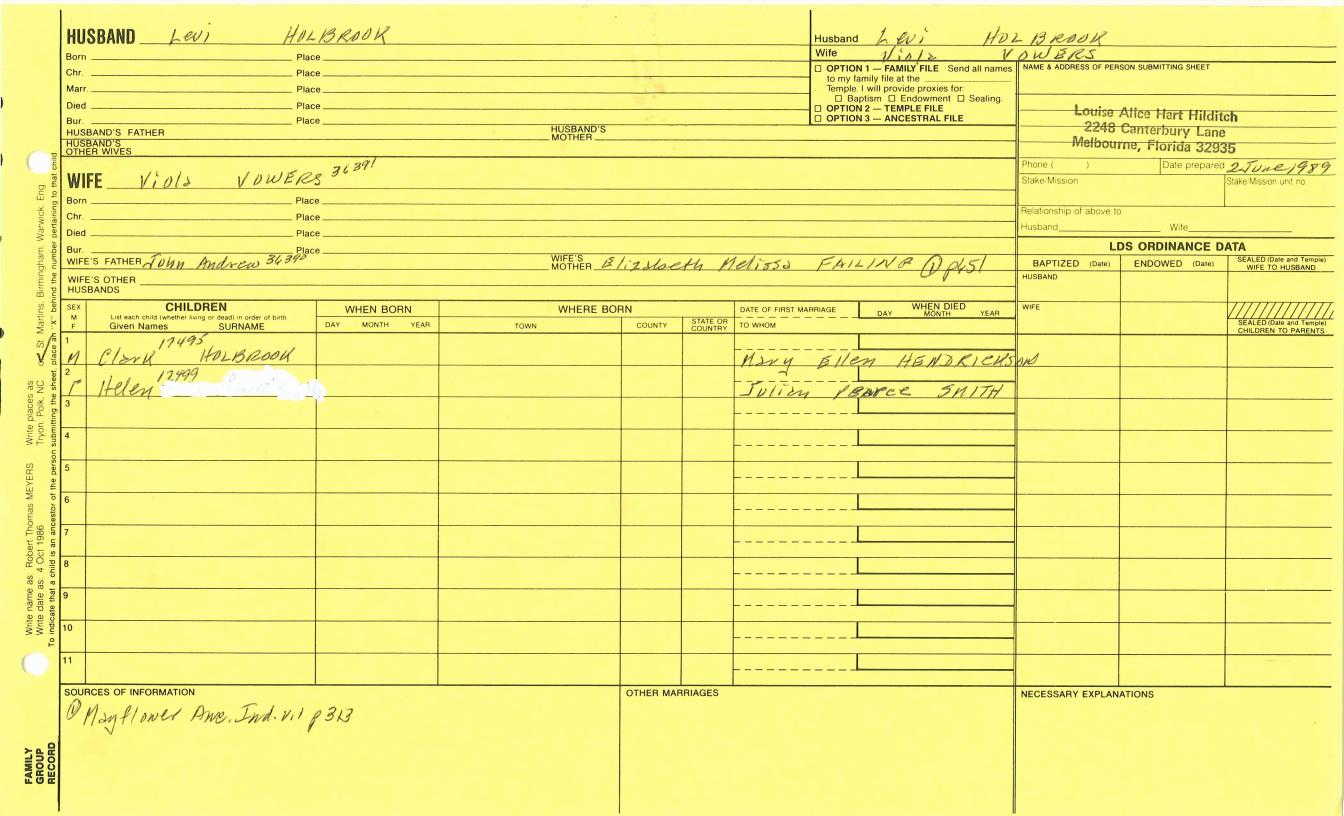 HUSBAND Levi HOLBROOK
Born Place
Chr. Place
Marr. Place
Died Place
Bur. Place
HUSBAND'S FATHER HUSBAND'S MOTHER
HUSBAND'S OTHER WIVES
Husband Levi HOLBROOK
Wife Viola VOWERS
☐ OPTION 1 — FAMILY FILE Send all names
to my family file at the
Temple. I will provide proxies for:
☐ Baptism ☐ Endowment ☐ Sealing.
☐ OPTION 2 — TEMPLE FILE
☐ OPTION 3 — ANCESTRAL FILE
NAME & ADDRESS OF PERSON SUBMITTING SHEET
Louise Alice Hart Hilditch
2248 Canterbury Lane
Melbourne, Florida 32935
Phone ( ) Date prepared 2 June 1989
Stake/Mission Stake/Mission unit no.
Relationship of above to
Husband Wife
WIFE Viola VOWERS 36391
Born Place
Chr. Place
Died Place
Bur. Place
WIFE'S FATHER John Andrew WIFE'S MOTHER Elizabeth Melissa FAILING ① p451
WIFE'S OTHER HUSBANDS
LDS ORDINANCE DATA
BAPTIZED (Date) ENDOWED (Date) SEALED (Date and Temple) WIFE TO HUSBAND
HUSBAND
WIFE
SEALED (Date and Temple) CHILDREN TO PARENTS
SEX M F
CHILDREN
List each child (whether living or dead) in order of birth
Given Names SURNAME
WHEN BORN
DAY MONTH YEAR
WHERE BORN
TOWN COUNTY STATE OR COUNTRY
DATE OF FIRST MARRIAGE
TO WHOM
WHEN DIED
DAY MONTH YEAR
1 M Clark 17495 HOLBROOK Mary Ellen HENDRICKSON
2 F Helen 17499 Julian PEARCE SMITH
3
4
5
6
7
8
9
10
11
SOURCES OF INFORMATION
① Mayflower Anc. Ind. v.1 p 313
OTHER MARRIAGES
NECESSARY EXPLANATIONS
Write name as: Robert Thomas MEYERS Write places as: Tryon, Polk, NC or St. Martins, Birmingham, Warwick, Eng.
Write date as: 4 Oct 1986
To indicate that a child is an ancestor of the person submitting the sheet, place an "X" behind the number pertaining to that child.
FAMILY
GROUP
RECORD